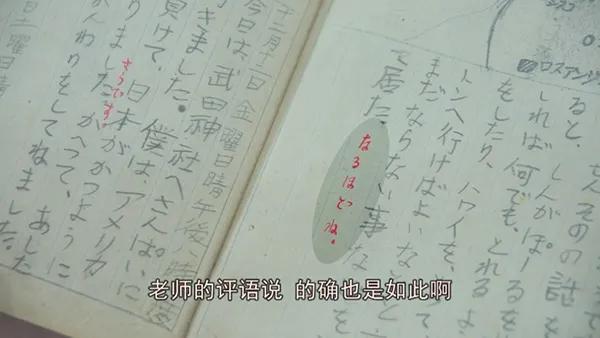 シスコ
ロスアンゼ
の話を
ると、しんがぽーるを
しれば何でも、とれるよ
をしたり、ハワイを、
トンへ行けばよいなどと
まだならない事な
て居た。
なるほどね。
十二月十二日 金曜日 晴 午後一時
今日は武田神社へさんぱいに
きました。僕は、アメリカ
負けて、日本がかつように
りました。かへって、あした
さうです。
わりをしてねました。
日 土曜日 晴
老师的评语说 的确也是如此啊